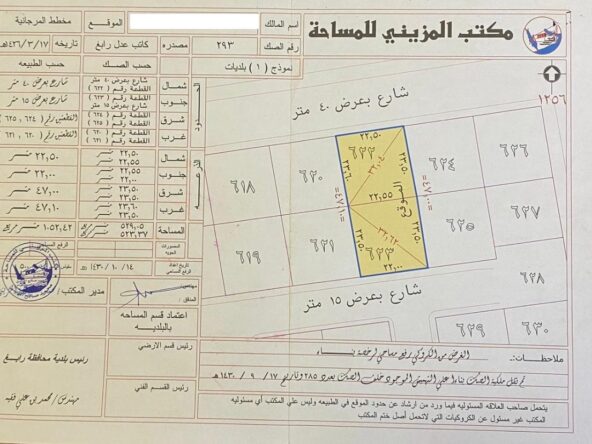 مكتب المزيني للمساحة
اسم المالك
الموقع
مخطط المرجانية
رقم الصك
٢٩٣
مصدره
كاتب عدل رابغ
تاريخه
١٤٢٦/٣/١٧هـ
نموذج (١) بلديات
حسب الصك
حسب الطبيعه
الحدود
شمال
شارع بعرض ٤٠ متر
القطعة رقم (٦٢٣)
شارع بعرض ٤٠ متر
جنوب
القطعة رقم (٦٢٢)
شارع بعرض ١٥ متر
شارع بعرض ١٥ متر
شرق
القطعة رقم (٦٢٤)
القطعة رقم (٦٢٥)
القطعتين رقم (٦٢٤ , ٦٢٥)
غرب
القطعة رقم (٦٢٠)
القطعة رقم (٦٢١)
القطعتين رقم (٦٢٠ , ٦٢١)
شمال
٢٢,٥٠
٢٢,٥٥
٢٢,٥٠ متر
جنوب
٢٢,٥٥
٢٢,٠٠
٢٢,٠٠ متر
شرق
٢٣,٥٠
٢٣,٥٠
٤٧,٠٠ متر
غرب
٢٣,٦٠
٢٣,٥٠
٤٧,١٠ متر
المساحة
٥٢٩,٠٥
٥٢٣,٣٧
١٠٥٢,٤٢
١٢٥٦
شارع بعرض ٤٠ متر
٢٢,٥٠
٦٢٢
٢٣,٦٠
٢٣,٥٠
٣٢,٠٤
=٤٧,١٠=
=٤٧,٠٠=
٢٢,٥٥
الموقع
٢٣,٥٠
٣٢,٦٢
٦٢٣
٢٢,٠٠
٦١٨
٦٢٠
٦٢٤
٦٢٦
٦١٩
٦٢١
٦٢٥
٦٢٧
٦٢٨
٦٢٩
٦٣٠
شارع بعرض ١٥ متر
١٤٣٠/١٠/١٤هـ
مدير المكتب:
اعتماد قسم المساحه بالبلديه
رئيس قسم الاراضي
رئيس القسم الفني
رئيس بلدية محافظة رابغ
مهندس/ محمد بن علي فقيه
ملاحظات:
الغرض من الكروكي رفع مساحي لرخصة بناء
تم نقل ملكية الصك بناءا علي التهميش الموجود خلف الصك بعدد ٢٨٥ وتاريخ ١٤٣٠/٩/١٧هـ
يتحمل صاحب العلاقه المسئوليه فيما ورد من ارشاد عن حدود الموقع في الطبيعه وليس علي المكتب أي مسئوليه
المكتب غير مسئول عن الكروكيات التي لاتحمل أصل ختم المكتب